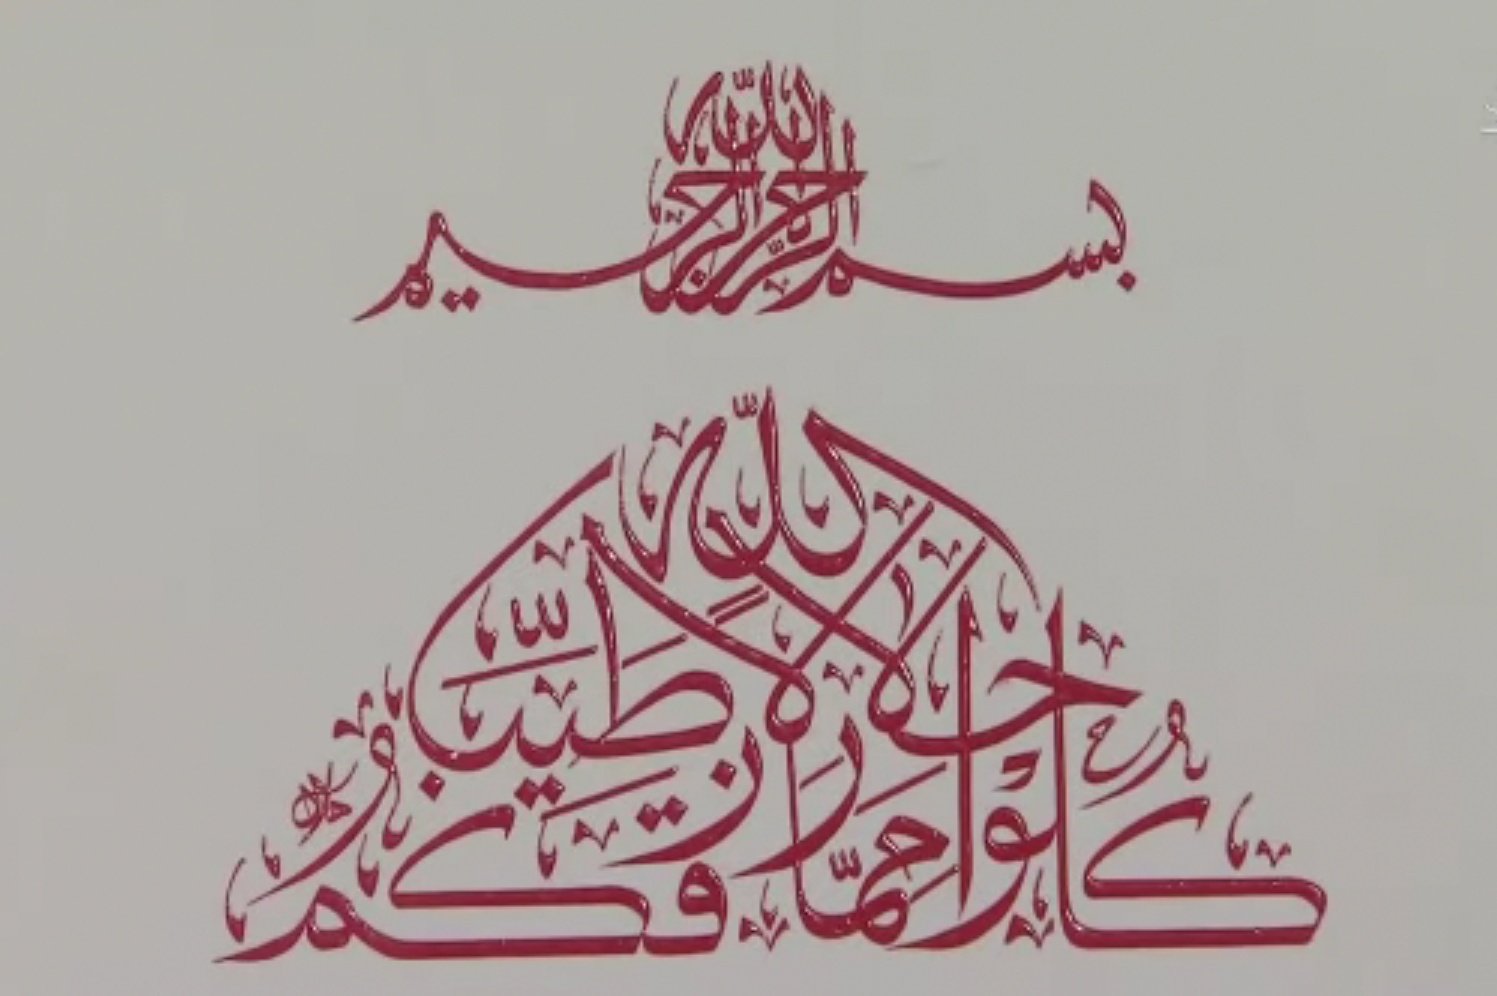 بسم الله الرحمن الرحيم
كلوا مما رزقكم الله حلالا طيبا